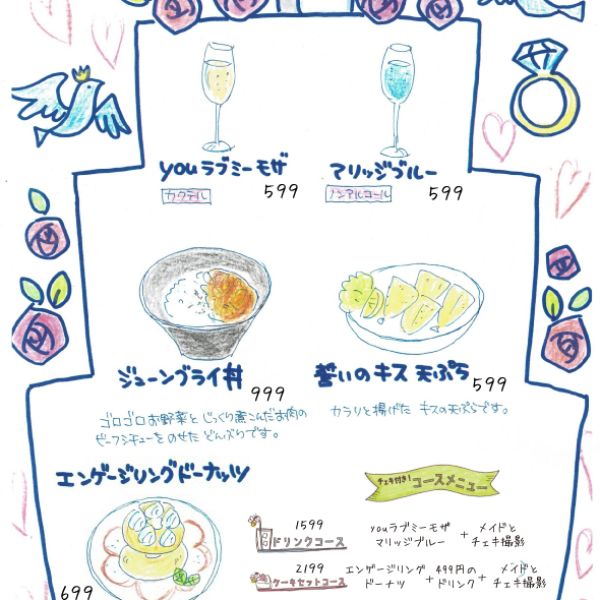 youラブミーモザ
マリッジブルー
カクテル
599
ノンアルコール
599
ジューンブライ丼
999
誓いのキス 天ぷら
599
ゴロゴロお野菜とじっくり煮こんだお肉の
ビーフシチューをのせた どんぶりです。
カラリと揚げた キスの天ぷらです。
エンゲージリングドーナッツ
699
チェキ付き!
コースメニュー
1599
ドリンクコース
youラブミーモザ
マリッジブルー
+
メイドと
チェキ撮影
2199
ケーキセットコース
エンゲージリング
ドーナツ
+
499円の
ドリンク
+
メイドと
チェキ撮影